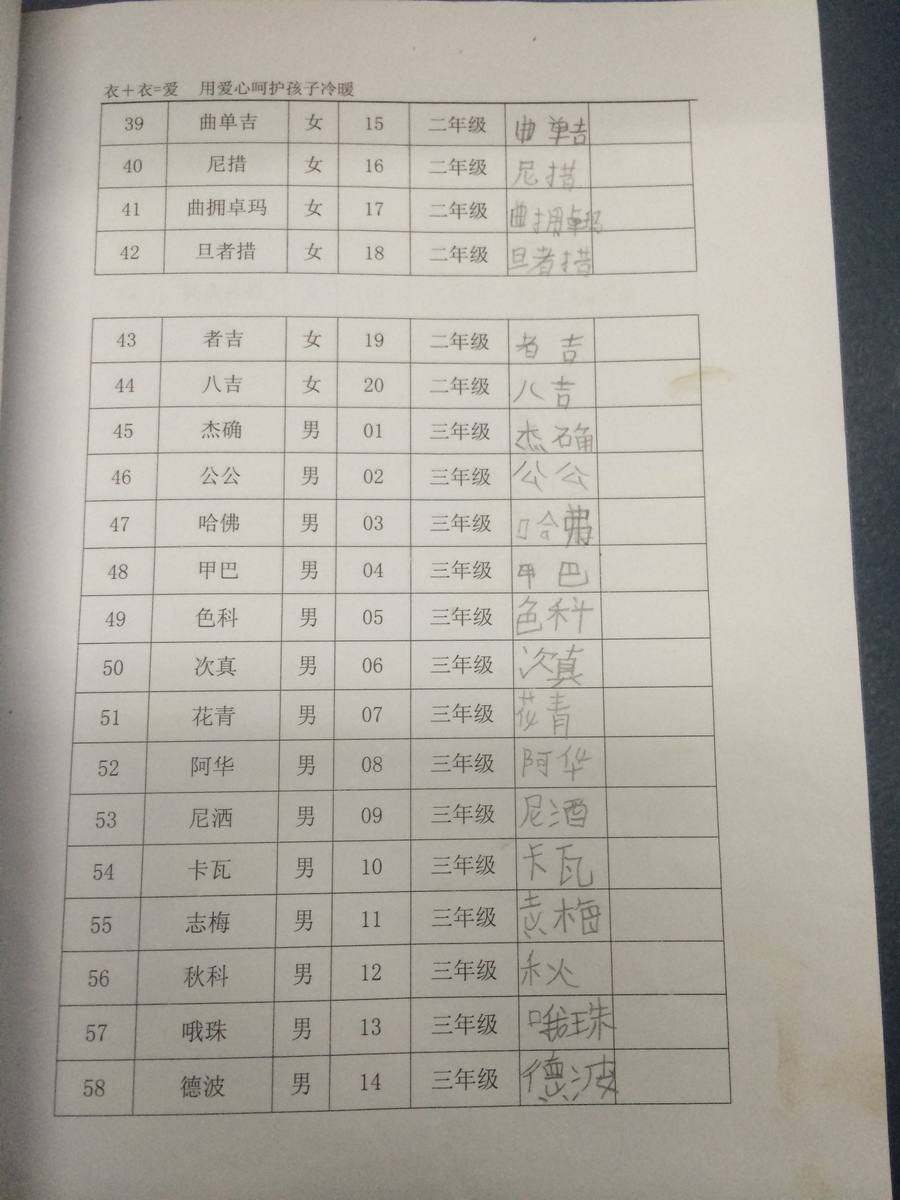 衣＋衣=爱 用爱心呵护孩子冷暖
39 曲单吉 女 15 二年级 曲单吉
40 尼措 女 16 二年级 尼措
41 曲拥卓玛 女 17 二年级 曲拥卓玛
42 旦者措 女 18 二年级 旦者措
43 者吉 女 19 二年级 者吉
44 八吉 女 20 二年级 八吉
45 杰确 男 01 三年级 杰确
46 公公 男 02 三年级 公公
47 哈佛 男 03 三年级 哈弗
48 甲巴 男 04 三年级 甲巴
49 色科 男 05 三年级 色科
50 次真 男 06 三年级 次真
51 花青 男 07 三年级 花青
52 阿华 男 08 三年级 阿华
53 尼洒 男 09 三年级 尼酒
54 卡瓦 男 10 三年级 卡瓦
55 志梅 男 11 三年级 志梅
56 秋科 男 12 三年级 秋
57 哦珠 男 13 三年级 哦珠
58 德波 男 14 三年级 德波